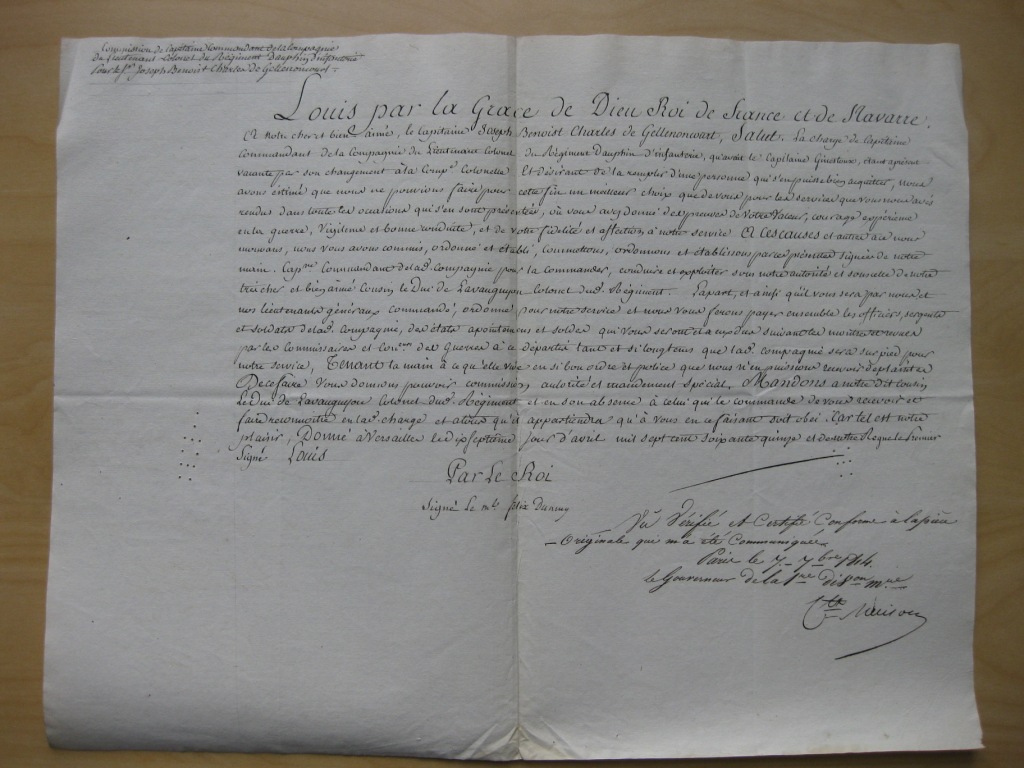 Commission de Capitaine Commandant de la Compagnie
du Lieutenant Colonel du Régiment Dauphin d'infanterie
Pour le Sr. Joseph Benoist Charles de Gellenoncourt.
Louis par la Grace de Dieu Roi de France et de Navarre.
A notre cher et bien aimé, le Capitaine Joseph Benoist Charles de Gellenoncourt, Salut. La charge de Capitaine
commandant de la Compagnie du Lieutenant Colonel du Régiment Dauphin d'infanterie, qu'avoit le Capitaine étant à présent
vacante par son changement à la Comp.e Colonelle Et désirant de la remplir d'une personne qui s'en puisse bien acquitter, nous
avons estimé que nous ne pouvions faire pour cette fin un meilleur choix que de vous pour les services que vous nous avés
rendus dans toutes les ocations qui s'en sont présentées, où vous avez donné des preuves de votre valeur, courage expérience
en la guerre, Vigilence et bonne conduite, et de votre fidélité et affection à notre service A ces causes et autres à ce nous
mouvans, nous vous avons commis, ordonné et établi, commettons, ordonnons et établissons par ces présentes signées de notre
main. Cap.ne Commandant de lad. compagnie pour la commander, conduire et exploiter sous notre autorité et sous celle de notre
très cher et bien aimé Cousin le Duc de Lavauguyon Colonel dud. Régiment. La part, et ainsi qu'il vous sera par nous et
nos lieutenants généraux commandé, ordonné pour notre service et nous vous ferons payer ensemble les officiers, sergents
et soldats de lad. compagnie, des états apointemens et soldes qui vous seront et à eux dus suivant les montres et revues
par les Commissaires et des Guerres à ce départis tant et si longtems que lad. compagnie sera sur pied pour
notre service, Tenant la main à ce qu'elle vive en si bon ordre et police que nous n'en puissions recevoir de plaintes
De ce faire Vous donnons pouvoir, commission, autorité et mandement spécial, Mandons à notre dit cousin
Le Duc de Lavauguyon Colonel dud. Régiment et en son absence à celui qui le commande de vous recevoir et
faire reconnoitre en lad. charge et à tous qu'il appartiendra qu'à vous en ce faisant soit obéi. Car tel est notre
plaisir, Donné à Versailles le dix septieme jour d'avril mil sept cent soixante quinze et de notre Regne le Premier
Signé Louis
Par Le Roi
Signé Le m. felix Dumuy
Vu Vérifié et Certifié Conforme à la pièce
Originale qui m'a été Communiquée
Paris le 7 7bre 1814.
le Gouverneur de la 1re dison mre
Cte Maison